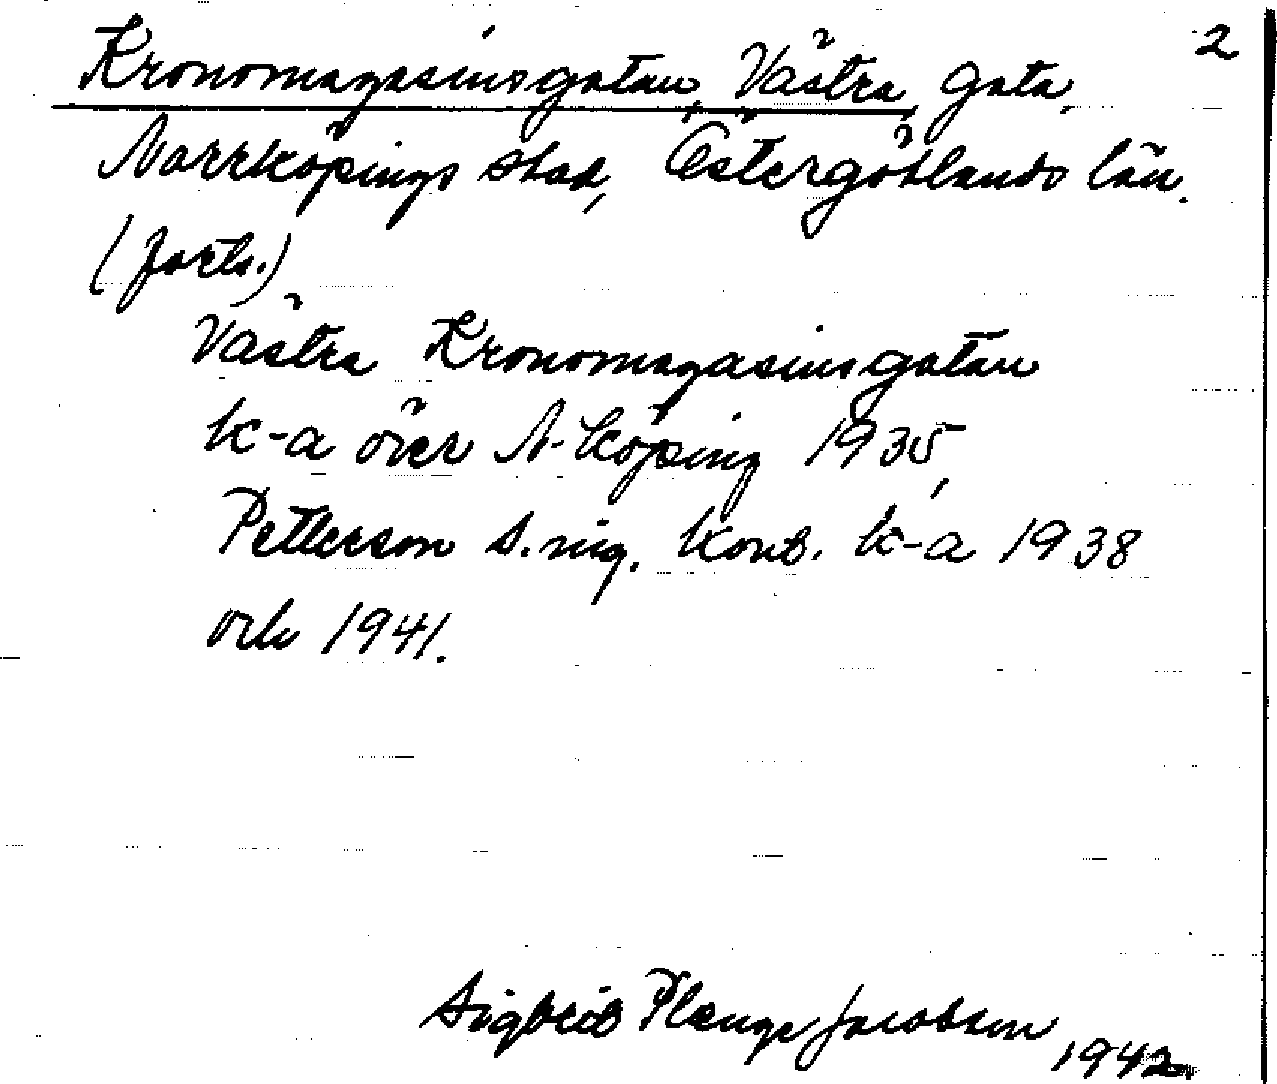 2
Kronomagasinsgatan, Västra, Gata,
Norrköpings stad, Östergötlands län.
(forts.)
Västra Kronomagasinsgatan
k-a över N-köping 1935,
Petterson s.ing. kont. k-a 1938
och 1941.
Sigbrit Plænge Jacobson
1942.